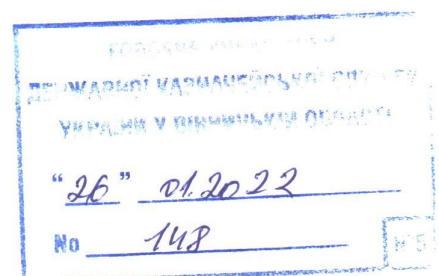 ДЕРЖАВНОЇ КАЗНАЧЕЙСЬКОЇ СЛУЖБИ
УКРАЇНИ У ВІННИЦЬКІЙ ОБЛАСТІ
"26" 01.2022
No 148
№5